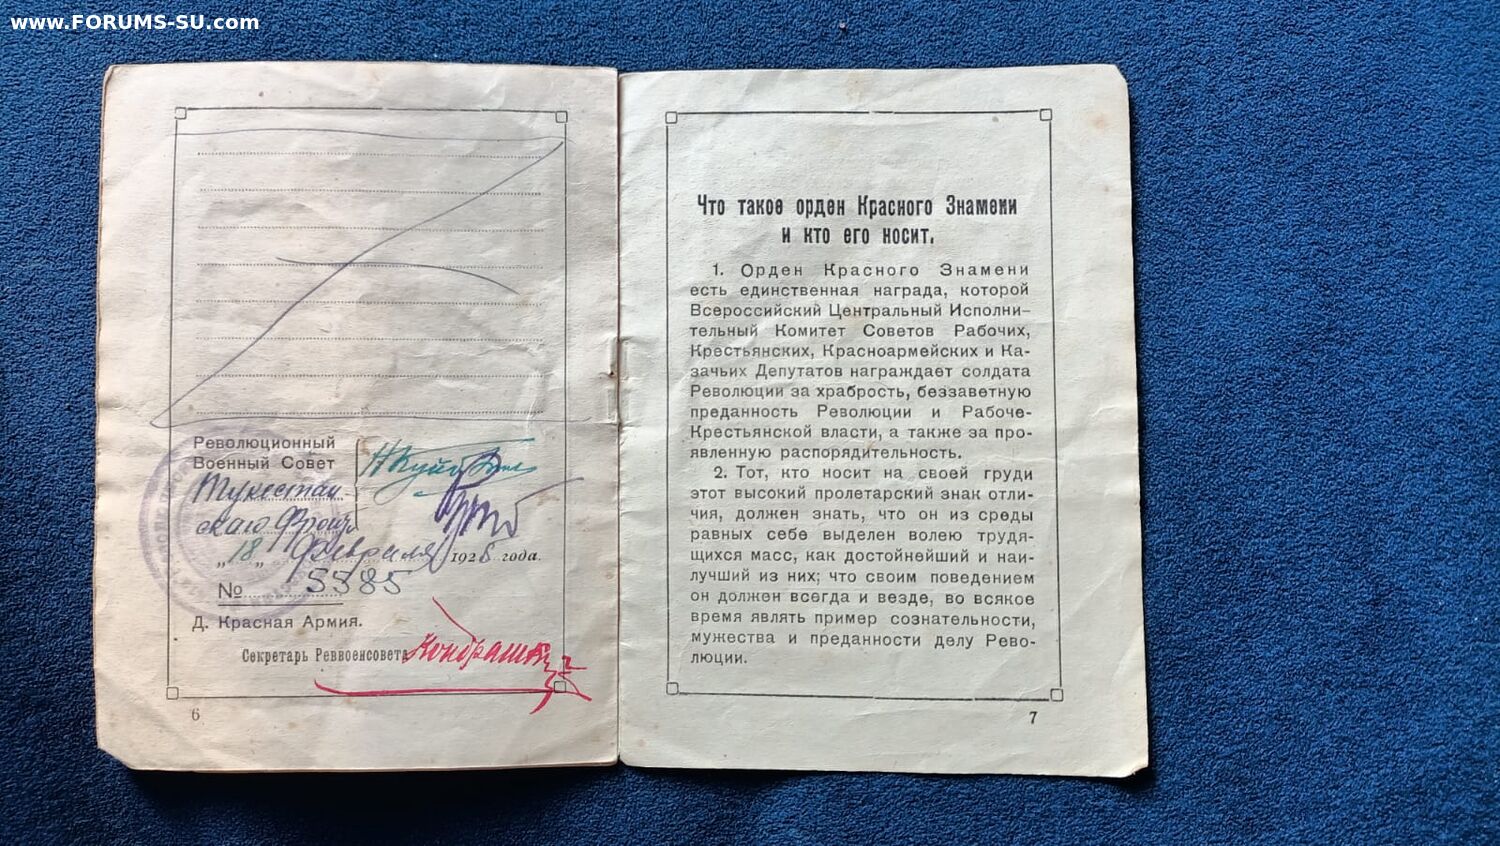 www.FORUMS-SU.com
Революционный
Военный Совет
Туркестан
ского Фронт
„18„ февраля 192 года.
№ 5585
Д. Красная Армия.
Секретарь Реввоенсовета
6
Что такое орден Красного Знамени
и кто его носит.
1. Орден Красного Знамени
есть единственная награда, которой
Всероссийский Центральный Исполни-
тельный Комитет Советов Рабочих,
Крестьянских, Красноармейских и Ка-
зачьих Депутатов награждает солдата
Революции за храбрость, беззаветную
преданность Революции и Рабоче-
Крестьянской власти, а также за про-
явленную распорядительность.
2. Тот, кто носит на своей груди
этот высокий пролетарский знак отли-
чия, должен знать, что он из среды
равных себе выделен волею трудя-
щихся масс, как достойнейший и наи-
лучший из них; что своим поведением
он должен всегда и везде, во всякое
время являть пример сознательности,
мужества и преданности делу Рево-
люции.
7